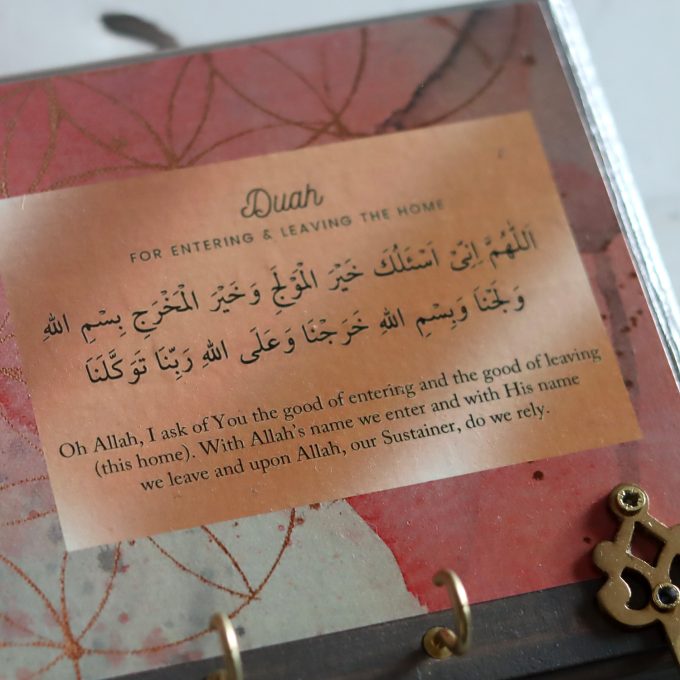 Duah
FOR ENTERING & LEAVING THE HOME
اَللّٰهُمَّ اِنِّىْ اَسْئَلُكَ خَيْرَ الْمَوْلَجِ وَخَيْرَ الْمَخْرَجِ بِسْمِ اللهِ
وَلَجْنَا وَبِسْمِ اللهِ خَرَجْنَا وَعَلَى اللهِ رَبِّنَا تَوَكَّلْنَا
Oh Allah, I ask of You the good of entering and the good of leaving
(this home). With Allah's name we enter and with His name
we leave and upon Allah, our Sustainer, do we rely.